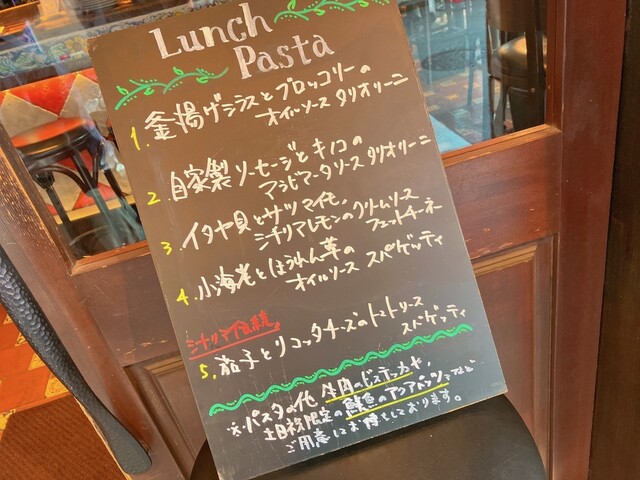 Lunch
Pasta
1. 釜揚げシラスとブロッコリーの
オイルソース タリオリーニ
2. 自家製ソーセージとキノコの
アラビアータソース タリオリーニ
3. イタヤ貝とサツマイモ、
シチリアレモンのクリームソース
フェットチーネ
4. 小海老とほうれん草の
オイルソース スパゲッティ
シチリア伝統
5. 茄子とリコッタチーズのトマトソース
スパゲッティ
※パスタの他 牛肉のビステッカや、
土日祝限定の鮮魚のアクアパッツァなど
ご用意してお待ちしております。